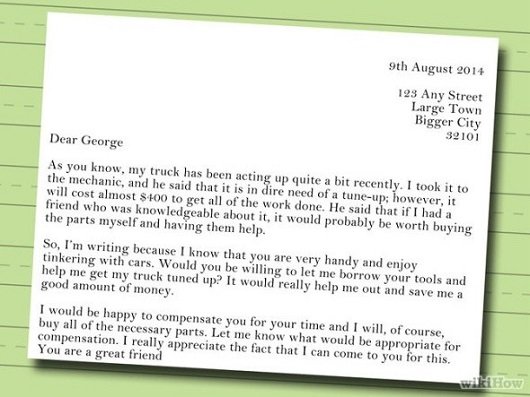 9th August 2014
123 Any Street
Large Town
Bigger City
32101
Dear George
As you know, my truck has been acting up quite a bit recently. I took it to
the mechanic, and he said that it is in dire need of a tune-up; however, it
will cost almost $400 to get all of the work done. He said that if I had a
friend who was knowledgeable about it, it would probably be worth buying
the parts myself and having them help.
So, I'm writing because I know that you are very handy and enjoy
tinkering with cars. Would you be willing to let me borrow your tools and
help me get my truck tuned up? It would really help me out and save me a
good amount of money.
I would be happy to compensate you for your time and I will, of course,
buy all of the necessary parts. Let me know what would be appropriate for
compensation. I really appreciate the fact that I can come to you for this.
You are a great friend
wikiHow